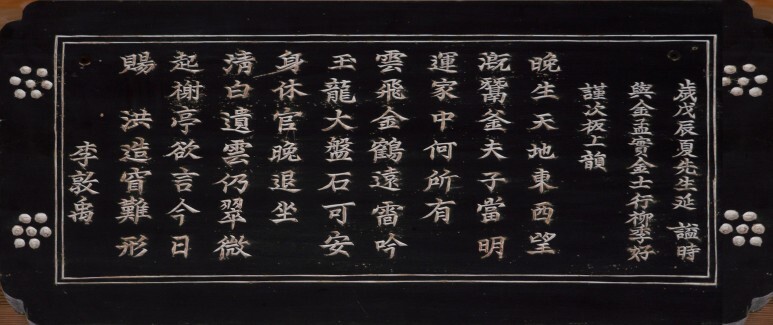 歲戊辰夏先生延 諡時
與金孟實金士行柳季好
謹次板上韻
晚生天地東西望
漑鬵釜夫子當明
運家中何所有
雲飛金鶴遠霄吟
玉龍大盤石可安
身休官晚退坐
淸白遺雲仍翠微
起榭亭欲言今日
賜 洪造窅難形
李敦禹